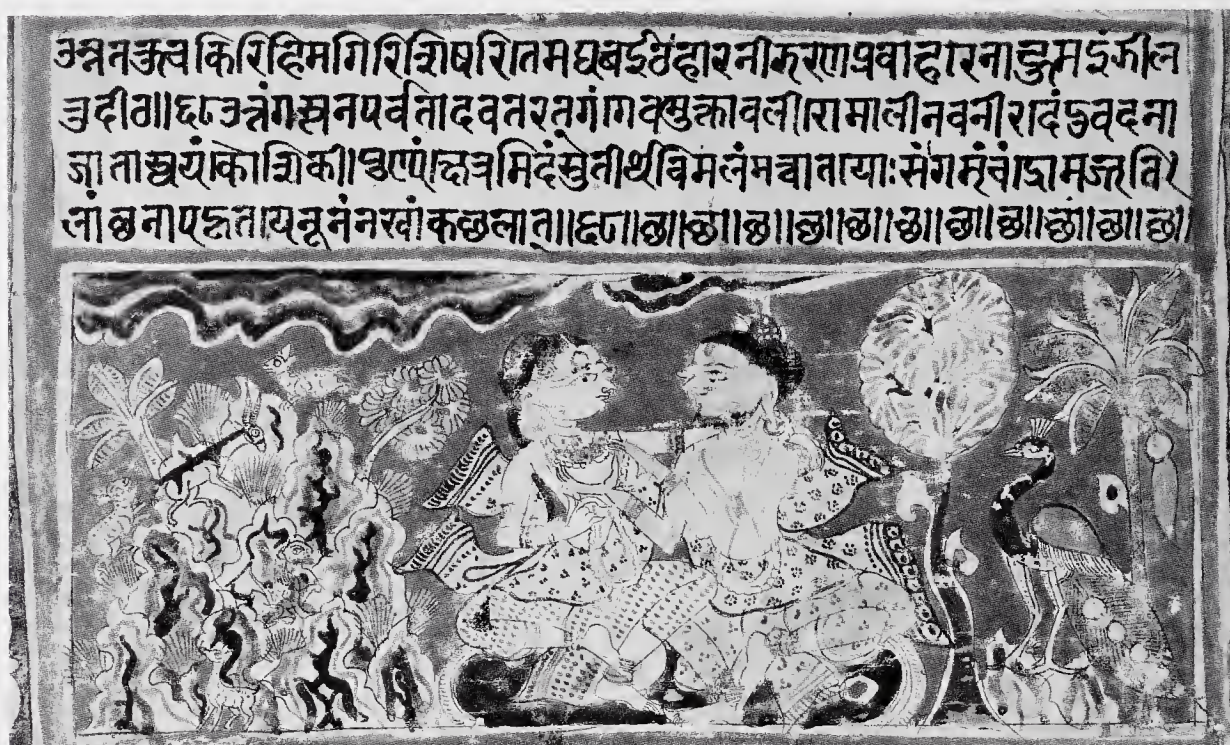 उन्नतकुचकिरिहिमगिरिशिषरितिमघबईठहारनीझरणप्रवाहारनाह्नुमइंझील
नुदीठ॥६८उत्तंगस्तनपर्वतादवतरत्गंगेवमुक्तावली।रोमालीनवनीरदेंदुवदना
जातास्वयंकौशिकी।पुण्यंक्षेत्रमिदंसुतीर्थविमलंमत्वातयोःसंगमंचंद्रोमज्जति
लांछनापहृतयेनूनंनखांकछलात्॥६८॥छ॥छ॥छ॥छ॥छ॥छ॥छ॥छ॥छ॥छ॥छ॥